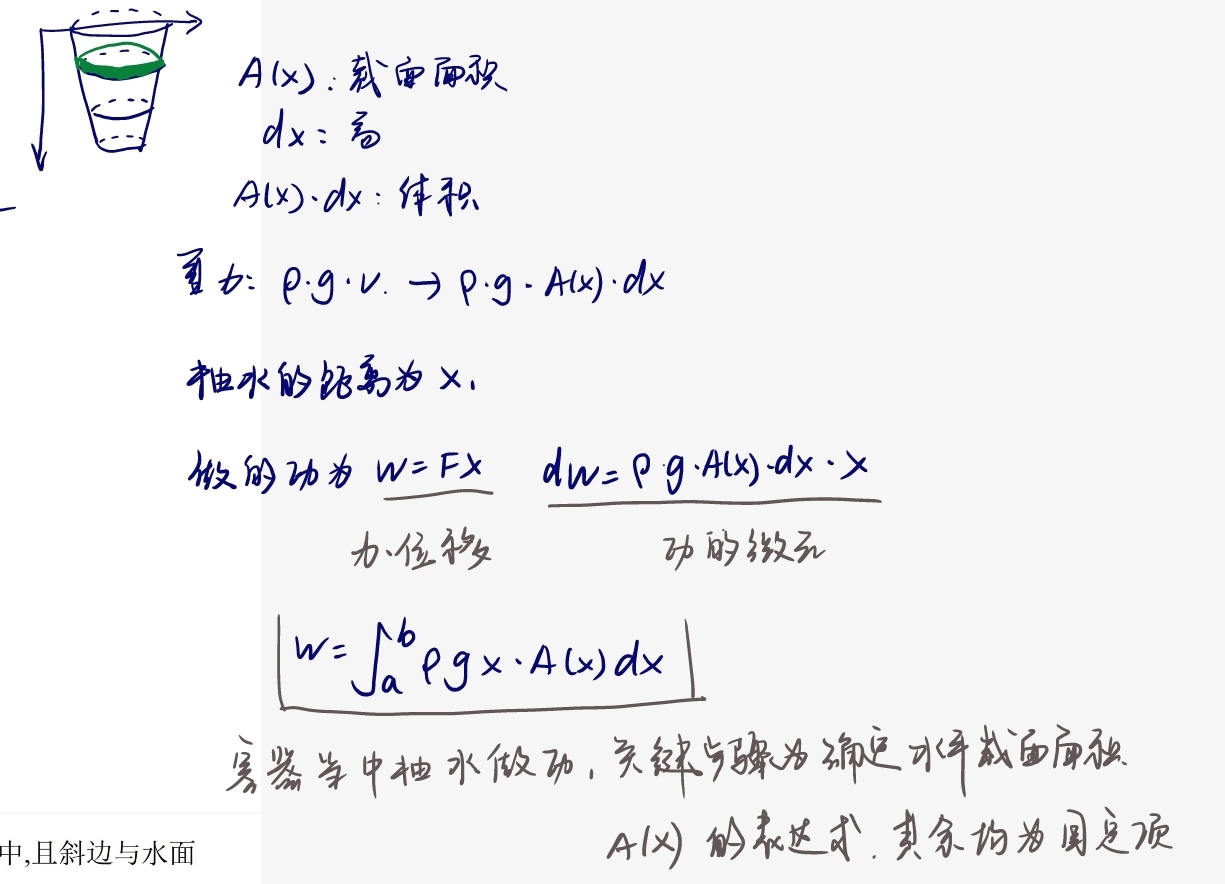 A(x):截面面积
dx:高
A(x)·dx:体积
重力: ρ·g·V. → ρ·g·A(x)·dx
抽水的距离为 x,
做的功为 W=Fx dW=ρ·g·A(x)·dx·x
力·位移 功的微元
W=∫_a^b ρgx·A(x)dx
容器当中抽水做功,关键步骤为确定水平截面面积
A(x) 的表达式.其余均为固定项
中,且斜边与水面